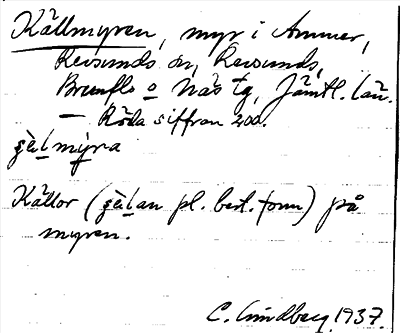 Källmyren, myr i Ammer,
Revsunds sn, Revsunds,
Brunflo o Näs tg, Jämtl. län.
— Röda siffran 200.
ʂèlmýra
Källor (ʂèlan pl. best. form) på
myren.
C. Lindberg 1937.